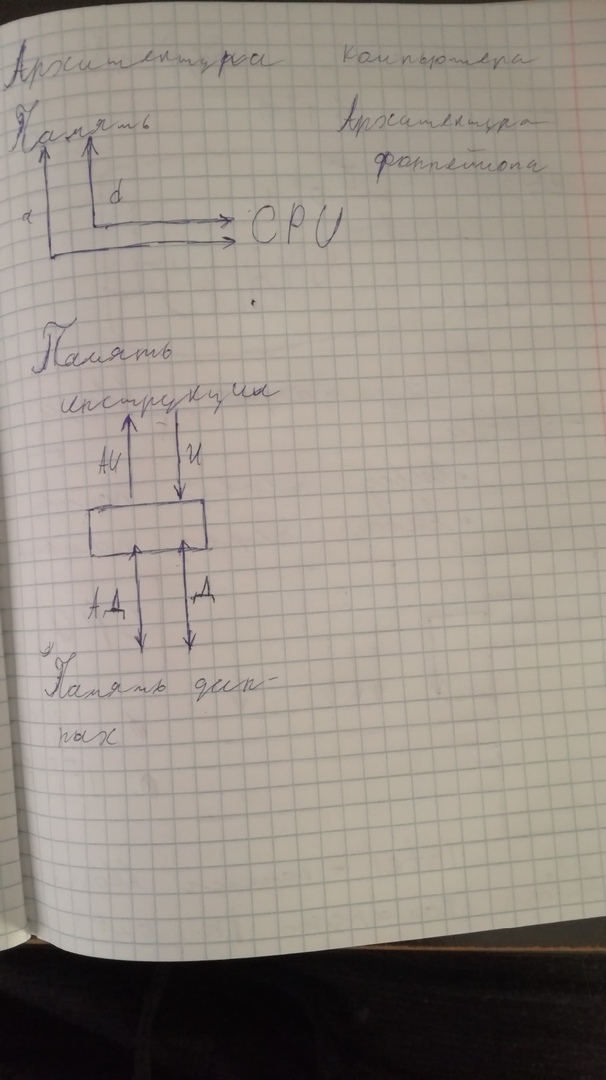 Архитектура компьютера
Память
Архитектура
фоннеймона
a
d
CPU
Память
инструкции
АИ
И
АД
Д
Память дан-
ных